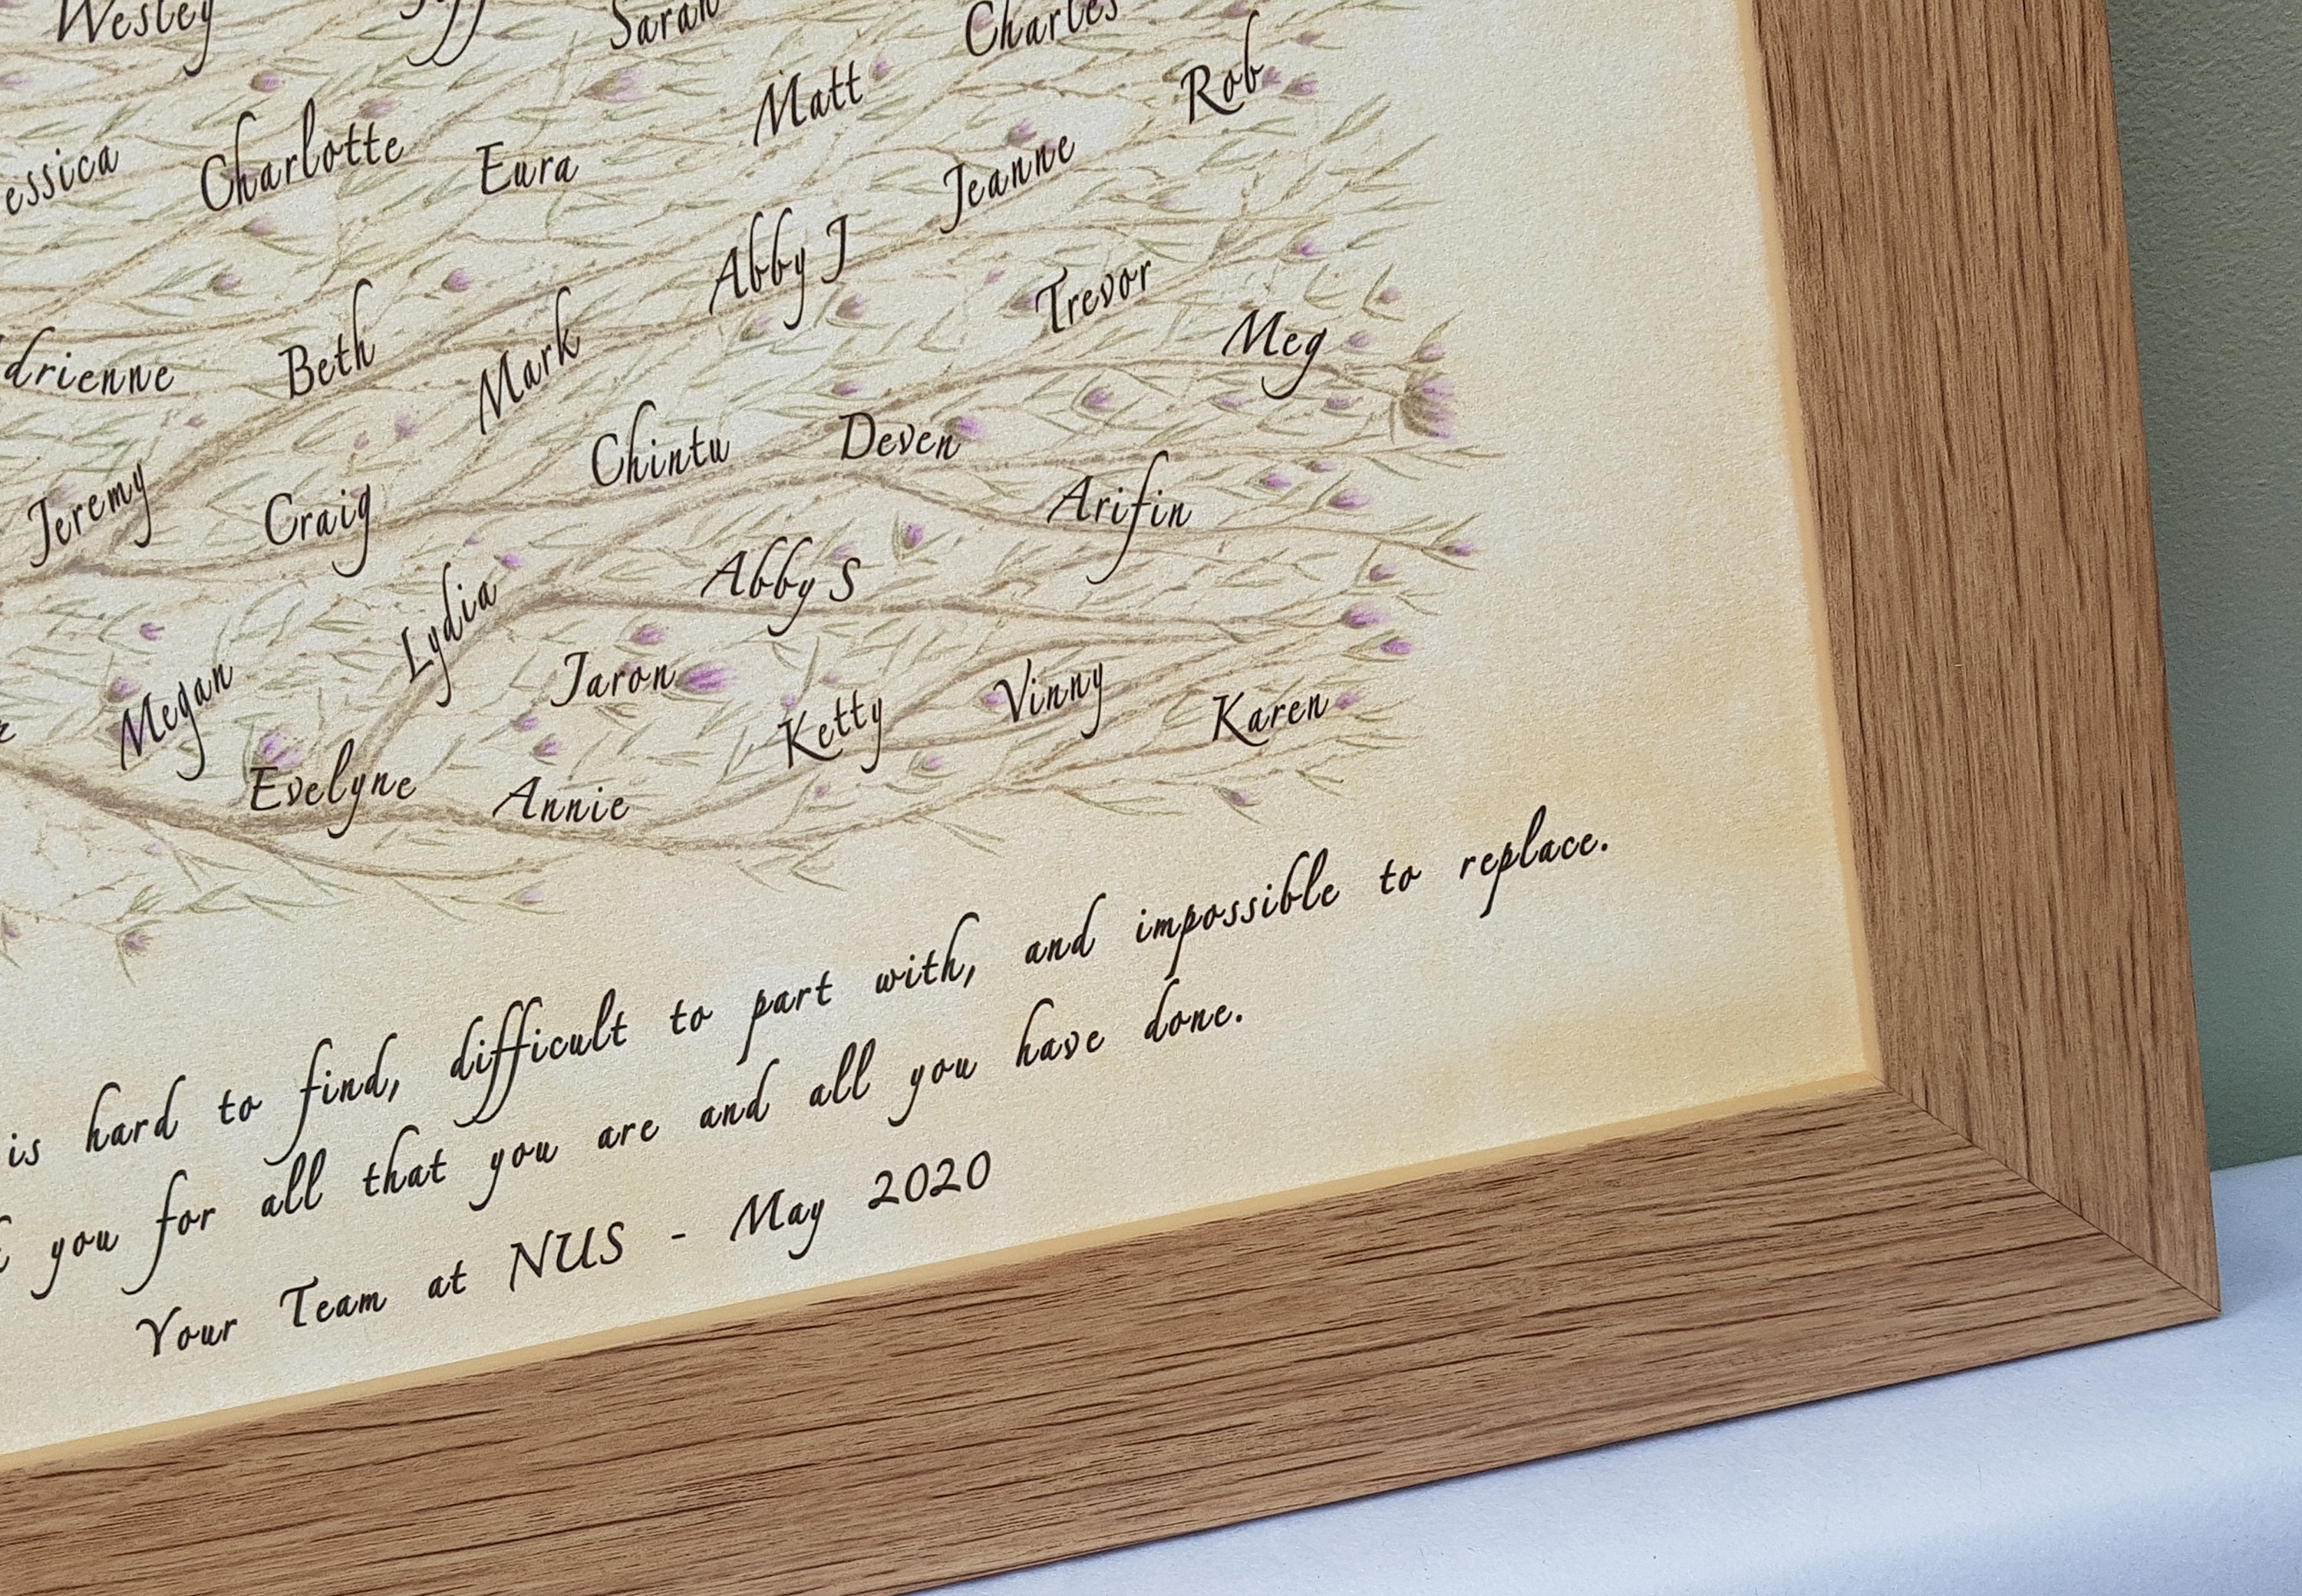 Wesley
Sarah
Charles
Matt
Rob
essica
Charlotte
Eura
Jeanne
Abby J
Trevor
drienne
Beth
Mark
Meg
Chintu
Deven
Jeremy
Craig
Arifin
Lydia
Abby S
Megan
Jaron
Ketty
Vinny
Karen
Evelyne
Annie
is hard to find, difficult to part with, and impossible to replace.
you for all that you are and all you have done.
Your Team at NUS - May 2020